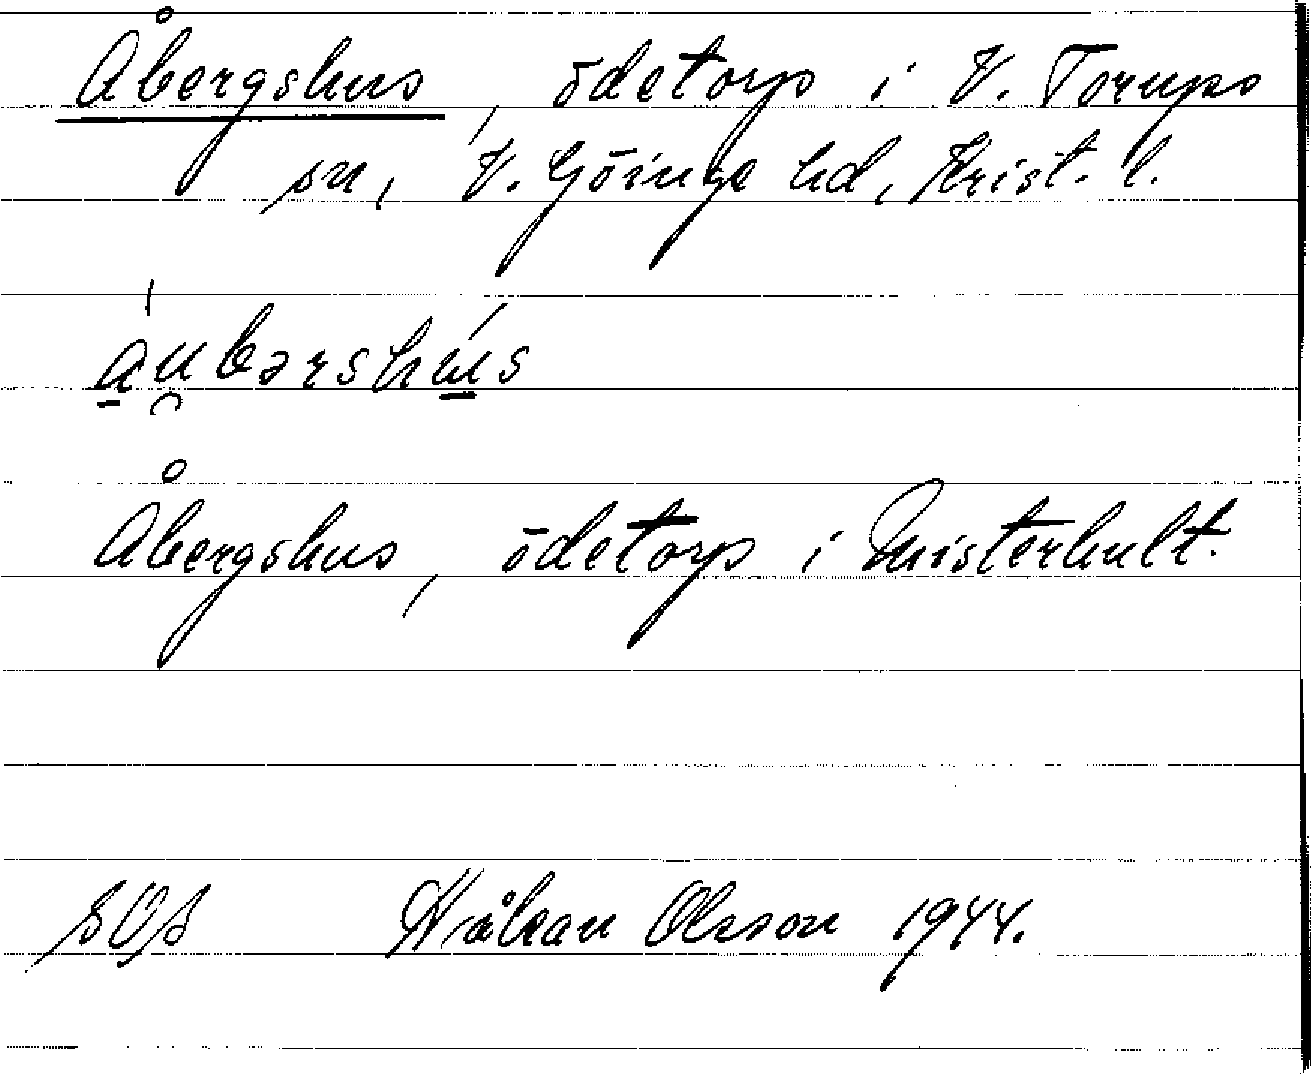 Åbergshus, ödetorp i V. Torups
sn, V. Göinge hd, Krist. l.
áu̯bərshús
Åbergshus, ödetorp i Misterhult.
SOS Håkan Olsson 1944.